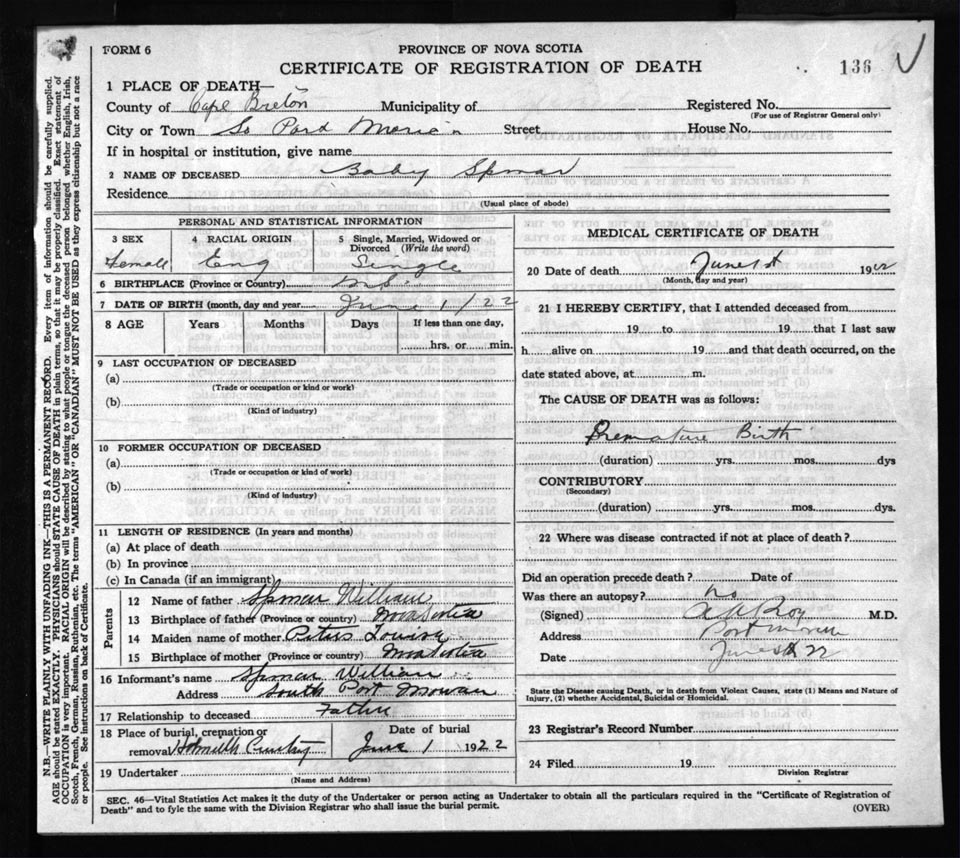 FORM 6
PROVINCE OF NOVA SCOTIA
CERTIFICATE OF REGISTRATION OF DEATH
136
1 PLACE OF DEATH—
County of Cape Breton Municipality of Registered No.
(For use of Registrar General only)
City or Town So Street House No.
If in hospital or institution, give name
2 NAME OF DECEASED Baby
Residence
(Usual place of abode)
PERSONAL AND STATISTICAL INFORMATION
3 SEX 4 RACIAL ORIGIN 5 Single, Married, Widowed or Divorced (Write the word)
Female Eng Single
6 BIRTHPLACE (Province or Country)
7 DATE OF BIRTH (month, day and year June 1/22
8 AGE Years Months Days If less than one day,
hrs. or min.
9 LAST OCCUPATION OF DECEASED
(a)
(Trade or occupation or kind or work)
(b)
(Kind of industry)
10 FORMER OCCUPATION OF DECEASED
(a)
(Trade or occupation or kind of work)
(b)
(Kind of industry)
11 LENGTH OF RESIDENCE (In years and months)
(a) At place of death
(b) In province
(c) In Canada (if an immigrant)
Parents
12 Name of father William
13 Birthplace of father (Province or country) Nova Scotia
14 Maiden name of mother Louisa
15 Birthplace of mother (Province or country) Nova Scotia
16 Informant's name William
Address South Port
17 Relationship to deceased Father
18 Place of burial, cremation or removal Date of burial
June 1 1922
19 Undertaker
(Name and Address)
MEDICAL CERTIFICATE OF DEATH
20 Date of death June 1st 1922
(Month, day and year)
21 I HEREBY CERTIFY, that I attended deceased from
19 to 19 that I last saw
h alive on 19 and that death occurred, on the
date stated above, at m.
The CAUSE OF DEATH was as follows:
Premature Birth
(duration) yrs. mos. dys
CONTRIBUTORY
(Secondary)
(duration) yrs. mos. dys.
22 Where was disease contracted if not at place of death?
Did an operation precede death? Date of
Was there an autopsy? No
(Signed) Roy M.D.
Address Port
Date June 22
State the Disease causing Death, or in death from Violent Causes, state (1) Means and Nature of
Injury, (2) whether Accidental, Suicidal or Homicidal.
23 Registrar's Record Number
24 Filed 19
Division Registrar
SEC. 46—Vital Statistics Act makes it the duty of the Undertaker or person acting as Undertaker to obtain all the particulars required in the "Certificate of Registration of
Death" and to fyle the same with the Division Registrar who shall issue the burial permit. (OVER)
N.B.—WRITE PLAINLY WITH UNFADING INK—THIS IS A PERMANENT RECORD. Every item of information should be carefully supplied.
AGE should be stated EXACTLY. PHYSICIANS should STATE CAUSE OF DEATH in plain terms, so that it may be properly classified. Exact statement of
OCCUPATION is very important. RACIAL ORIGIN will be described by stating to what people or tongue the deceased person belonged whether English, Irish,
Scotch, French, German, Russian, Ruthenian, etc. The terms "AMERICAN" OR "CANADIAN" MUST NOT BE USED as they express citizenship but not a race
or people. See instructions on back of Certificate.